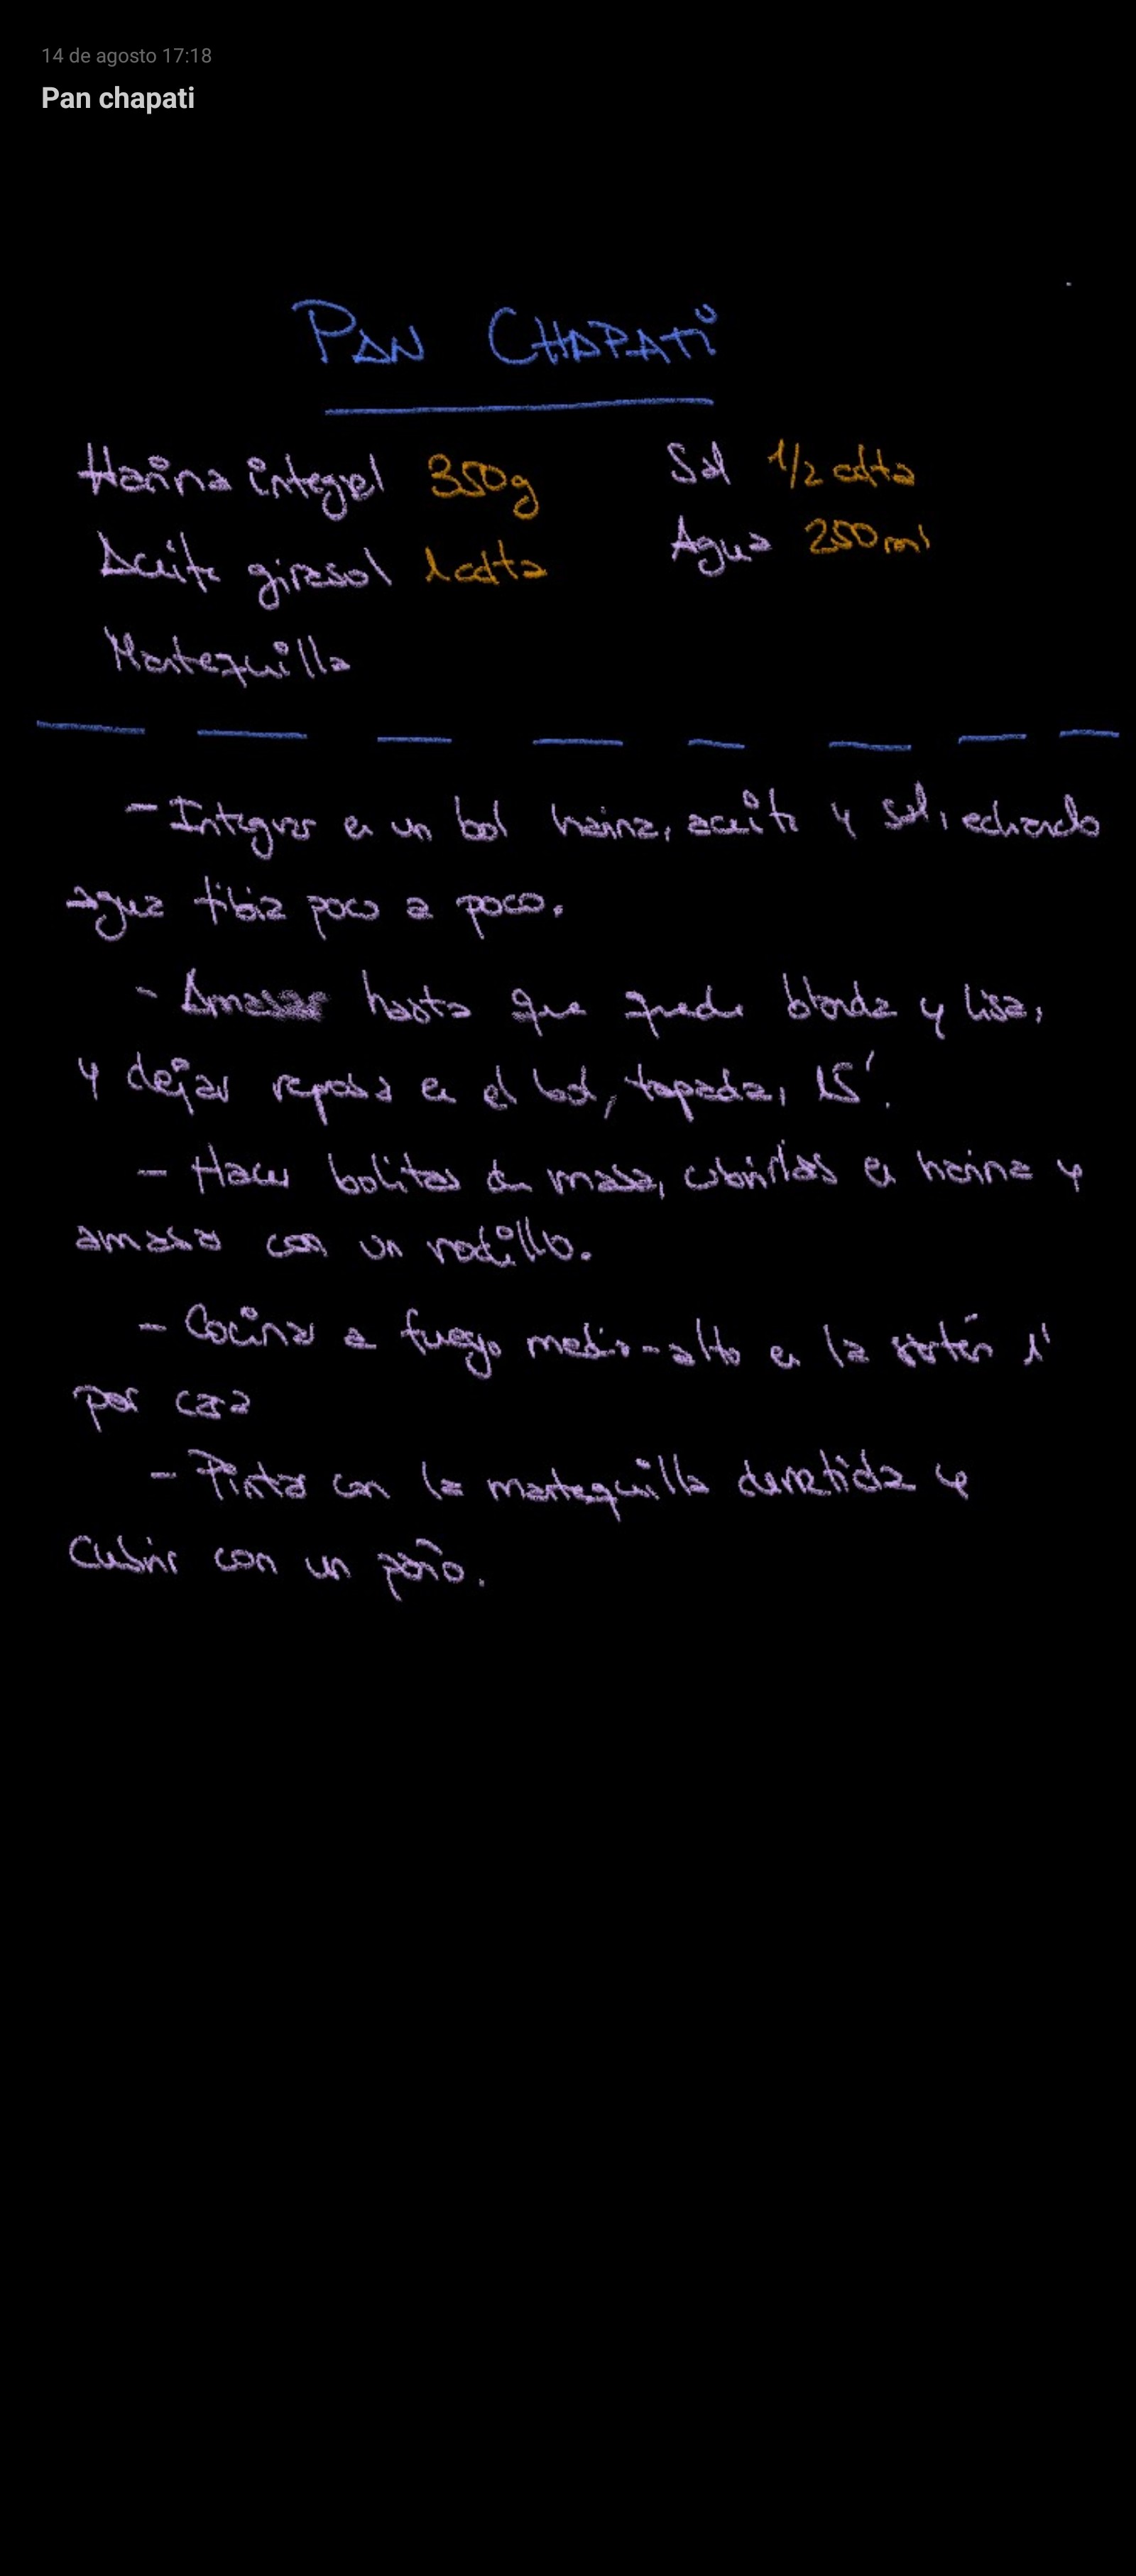 14 de agosto 17:18
Pan chapati
PAN CHAPATI
Harina integral 350g
Sal 1/2 cdta
Aceite girasol 1 cdta
Agua 250 ml
Mantequilla
- Integrar en un bol harina, aceite y sal, echando
agua tibia poco a poco.
- Amasar hasta que quede blanda y lisa,
y dejar reposar en el bol, tapada, 15'.
- Hacer bolitas de masa, cubrirlas en harina y
amasar con un rodillo.
- Cocinar a fuego medio-alto en la sartén 1'
por cara
- Pintar con la mantequilla derretida y
cubrir con un paño.